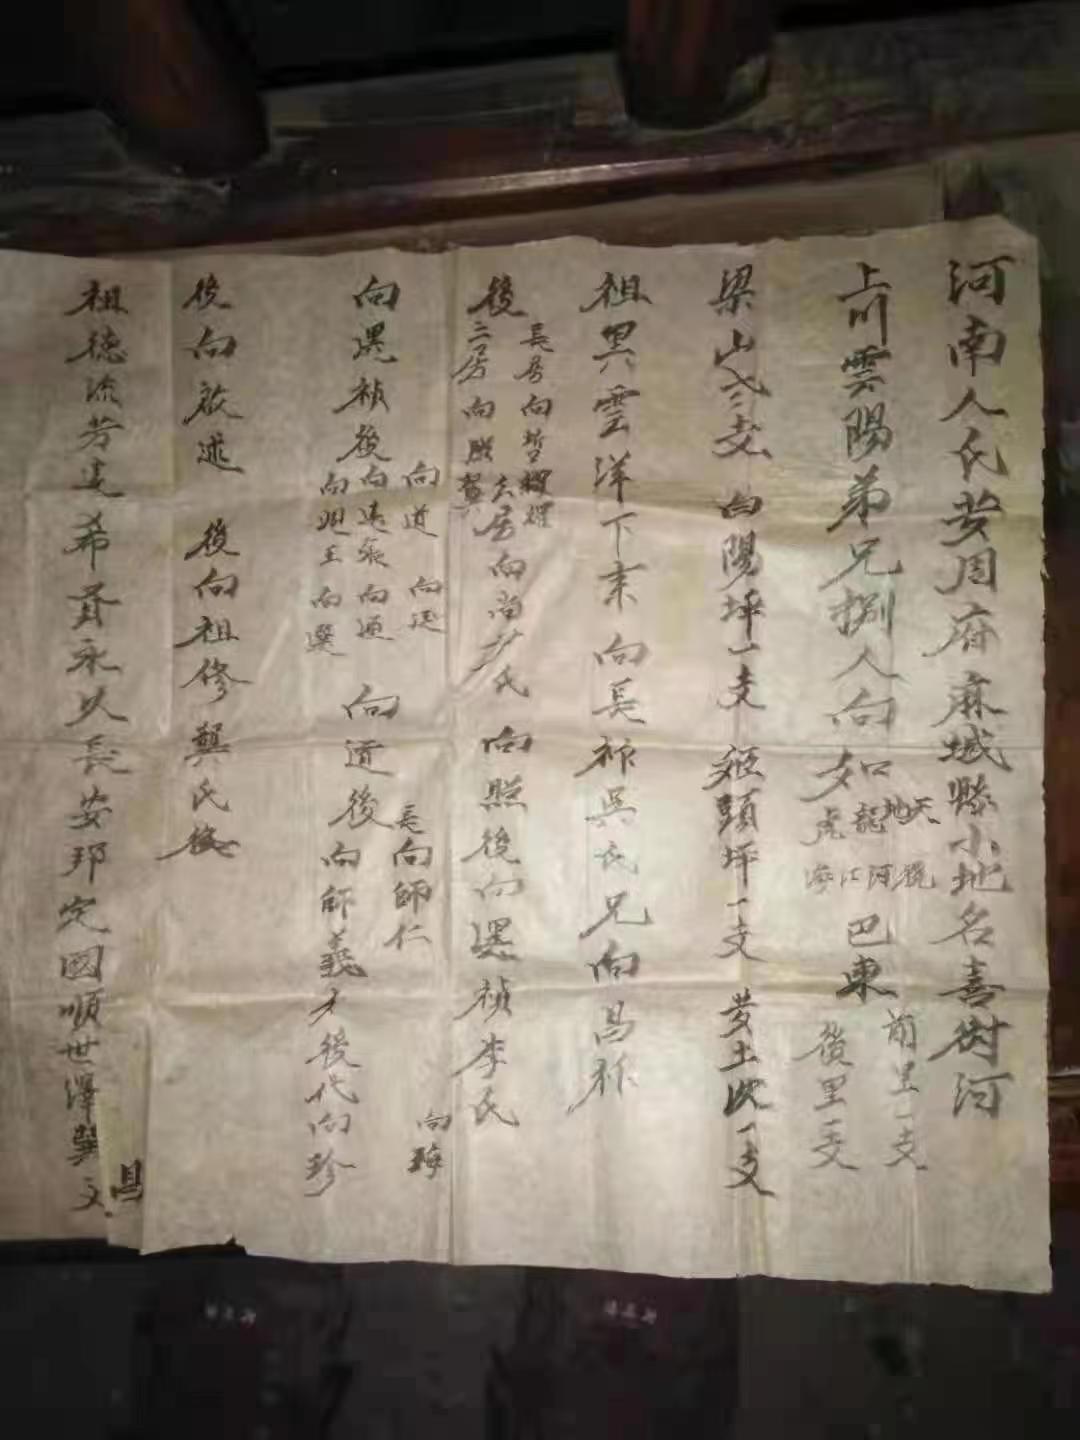 河南人氏黄周府麻城縣小地名喜树河
上川雲陽弟兄捌人向如天地龍虎河江海巴東前里一支後里一支
梁山 支向陽坪一支 頭坪一支黄土坎一支
祖 雲洋下来向長祚吳氏兄向昌祚
後長房向哲耀二房向照賀 房向尚 氏向照後向 禎李氏
向 禎後向道向達向遠 向通向現玉向選向道後長向師仁向師義 後代向珍向梅
後向啟述後向祖修龔氏後
祖德流芳 希賢永久長安邦定國順世澤 文昌